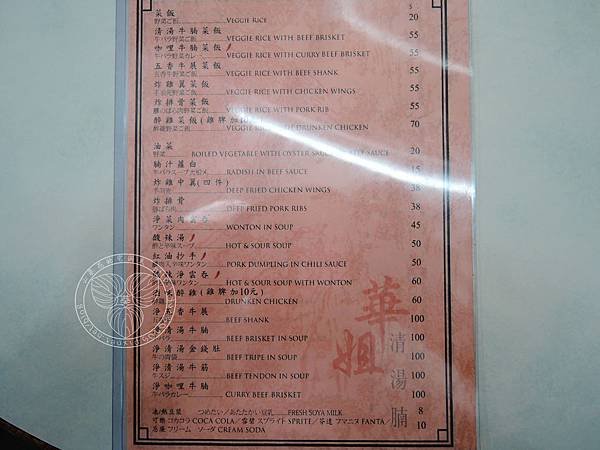 $
菜飯
野菜ご飯 VEGGIE RICE 20
清湯牛腩菜飯
牛バラ野菜ご飯 VEGGIE RICE WITH BEEF BRISKET 55
咖哩牛腩菜飯
牛バラ野菜カレー VEGGIE RICE WITH CURRY BEEF BRISKET 55
五香牛展菜飯
五香牛野菜ご飯 VEGGIE RICE WITH BEEF SHANK 55
炸雞翼菜飯
手羽先野菜ご飯 VEGGIE RICE WITH CHICKEN WINGS 55
炸排骨菜飯
豚のばら肉野菜ご飯 VEGGIE RICE WITH PORK RIB 55
醉雞菜飯(雞髀加10元)
酔雞野菜ご飯 VEGGIE RICE DRUNKEN CHICKEN 70
油菜
野菜 BOILED VEGETABLE WITH OYSTER SAUCE SAUCE 20
腩汁蘿白
RADISH IN BEEF SAUCE 15
炸雞中翼(四件)
手羽先 DEEP FRIED CHICKEN WINGS 38
炸排骨
豚ばら肉 DEEP FRIED PORK RIBS 38
淨菜肉雲吞
ワンタン WONTON IN SOUP 45
酸辣湯
酢と辛味スープ HOT & SOUR SOUP 50
紅油抄手
辛味ワンタン PORK DUMPLING IN CHILI SAUCE 50
酸辣淨雲吞
辛味ワンタン HOT & SOUR SOUP WITH WONTON 60
醉雞(雞髀加10元)
DRUNKEN CHICKEN 60
淨五香牛展
BEEF SHANK 100
淨清湯牛腩
牛バラ BEEF BRISKET IN SOUP 100
淨清湯金錢肚
牛の胃袋 BEEF TRIPE IN SOUP 100
淨清湯牛筋
牛スジ BEEF TENDON IN SOUP 100
淨咖哩牛腩
牛バラカレー CURRY BEEF BRISKET 100
冰/熱豆漿 つめたい/あたたかい豆乳 FRESH SOYA MILK 8
可樂 コカコラ COCA COLA/雪碧 スプライト SPRITE/芬達 ファニヌ FANTA/ 10
忌廉 クリーム ソーダ CREAM SODA
華姐
清湯腩